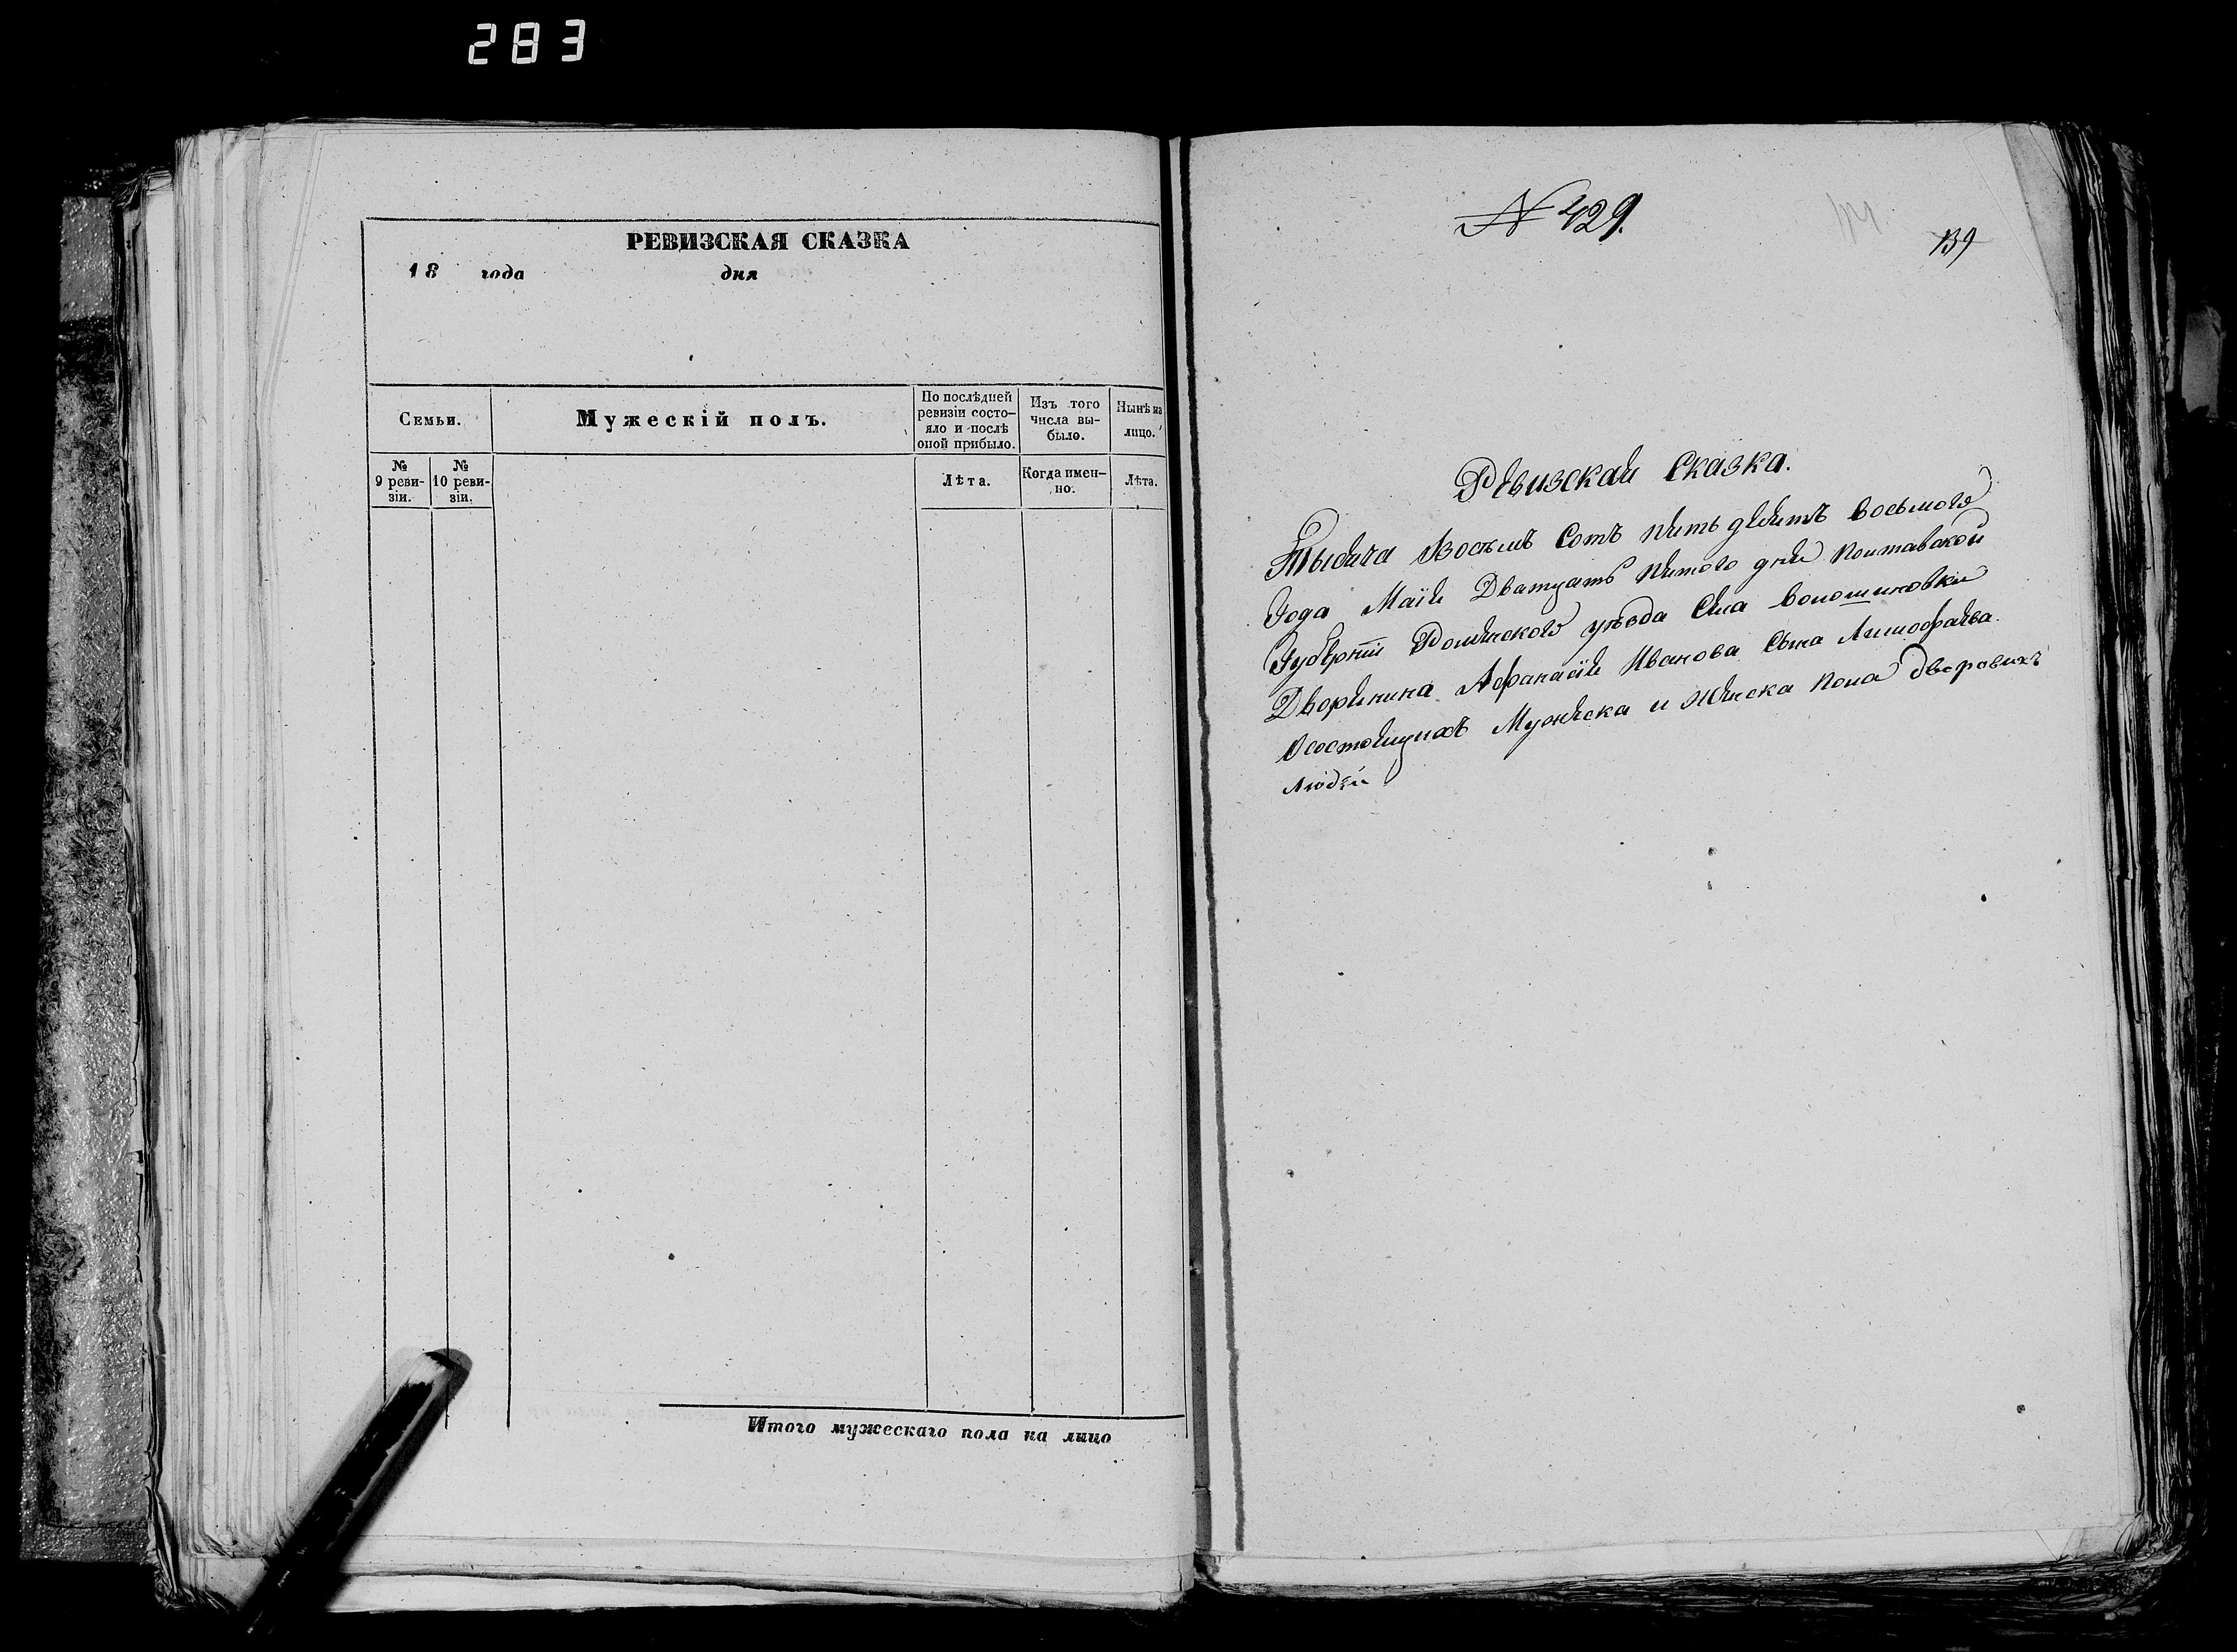 283
РЕВИЗСКАЯ СКАЗКА
18 года дня
Семьи.
Мужескій полъ.
По послѣдней ревизіи состо-
яло и послѣ
оной прибыло.
Изъ того
числа вы-
было.
Нынѣ на
лицо.
№
9 реви-
зіи.
№
10 реви-
зіи.
Лѣта.
Когда имен-
но.
Лѣта.
Итого мужескаго пола на лицо
№ 429.
139
Ревизская Сказка.
Тысяча Восемъ Сотъ пять десятъ восьмого
Года Маія Дватцать пятого дня Полтавской
Губерніи Роменского уѣзда Села Волошиновки
Дворянина Афанасія Иванова Сына
О состоящихъ Мужеска и Женска пола дворовихъ
людей